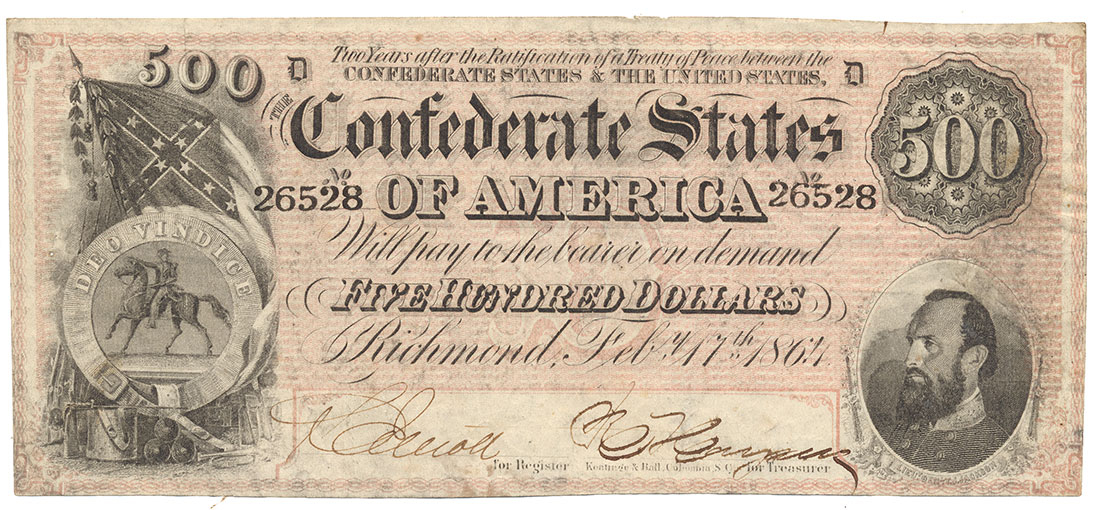 500 D Two Years after the Ratification of a Treaty of Peace between the D
CONFEDERATE STATES & THE UNITED STATES,
THE Confederate States
500
No 26528 OF AMERICA No 26528
DEO VINDICE
Will pay to the bearer on demand
FIVE HUNDRED DOLLARS
Richmond, Feby 17th 1864
for Register Keatinge & Ball, Columbia S.C. for Treasurer
LIEUTENANT JACKSON